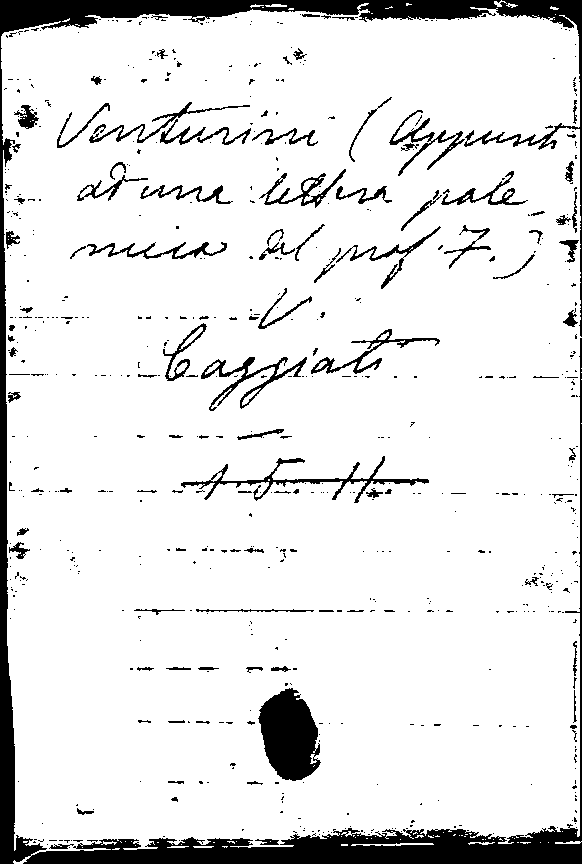 Venturini (Appunti
ad una lettera pole-
mica del prof. Z.)
V.
Caggiati
—
1. 5. 11.